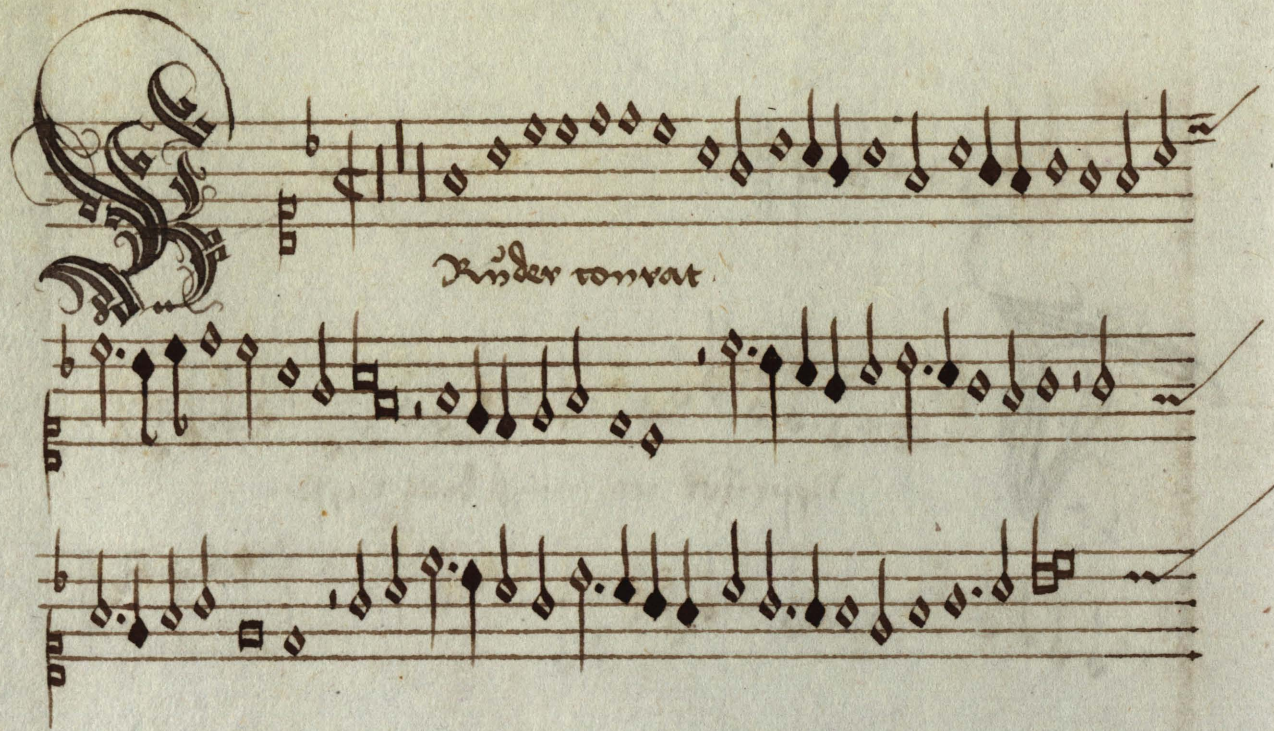 Růder conrat